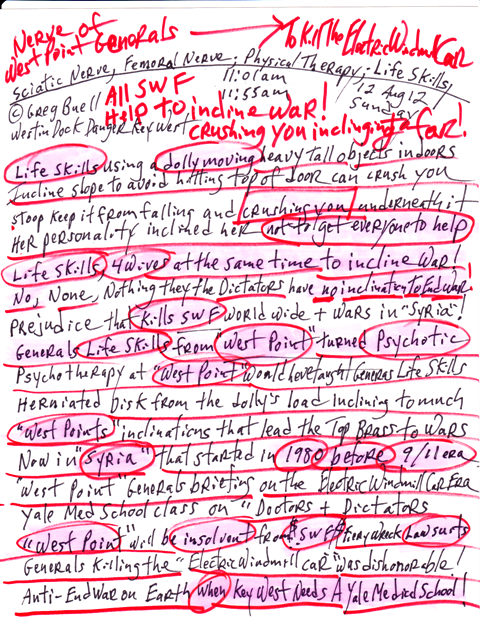 Nerve of
West Point Generals
To Kill The Electric Windmill Car
Sciatic Nerve, Femoral Nerve; Physical Therapy; Life Skills,
11:01am
11:55am
12 Aug 12
Sunday
© Greg Buell
Westin Dock Danger Key West
All SWF
Help to incline war!
crushing you inclining
a far!
Life Skills using a dolly moving heavy tall objects indoors
Incline slope to avoid hitting top of door can crush you
stoop keep it from falling and crushing you underneath it
Her personality inclined her not to get everyone to help
Life Skills 4 Wives at the same time to incline war!
No, None, Nothing they the Dictators have no inclination To End War
Prejudice that Kills SWF world wide + wars in "Syria"!
Generals Life Skills from West Point" turned Psychotic
Psychotherapy at "West Point" would have taught Generals Life Skills
Herniated Disk from the dolly's load inclining to much
"West Points" inclinations that lead the Top Brass to wars
Now in "Syria" that started in 1980 before 9/11 era
"West Point" Generals briefing on the Electric Windmill Car Era
Yale Med School class on "Doctors + Dictators
"West Point" will be insolvent from SWF Fiery Wreck Lawsuits
Generals Killing the "Electric Windmill Car" was dishonorable!
Anti-End War on Earth when Key West Needs A Yale Medical School!